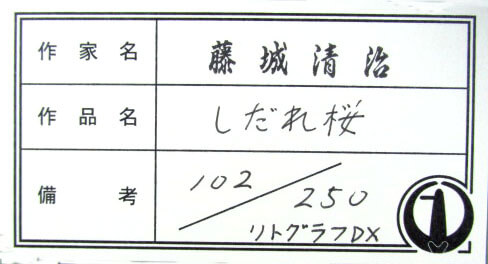 作家名 藤城清治
作品名 しだれ桜
備考 102/250
リトグラフDX